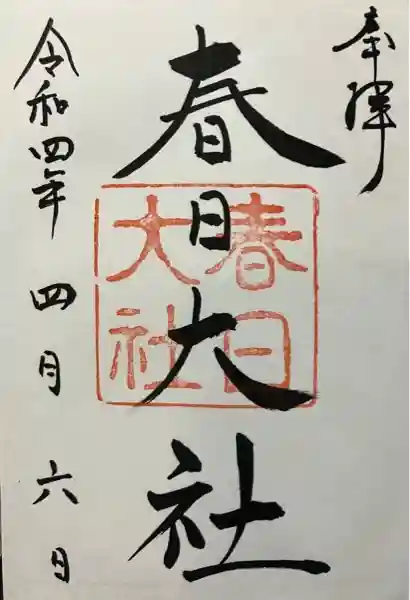 奉拝
春日大社
春日
大社
令和四年 四月 六日